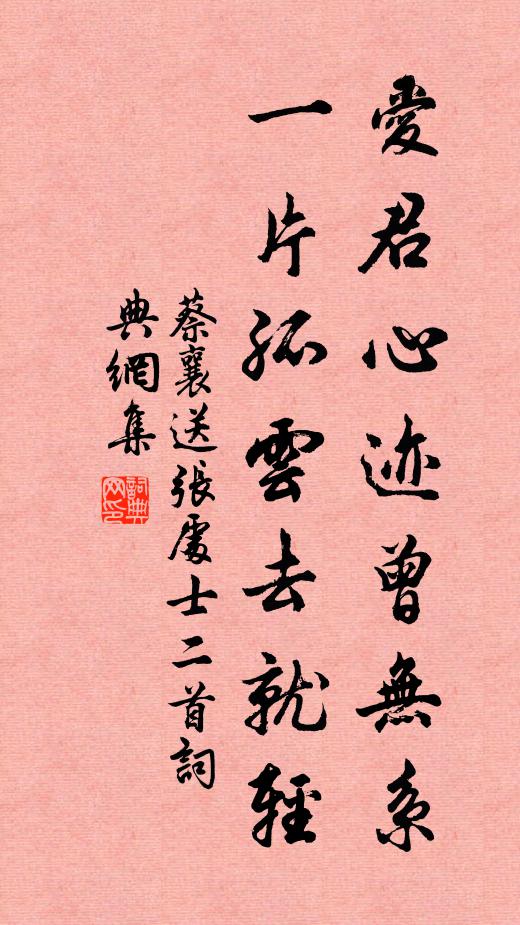 愛君心迹曾無系
一片孤雲去就輕
蔡襄送張處士二首詞
典網集
詞典網印